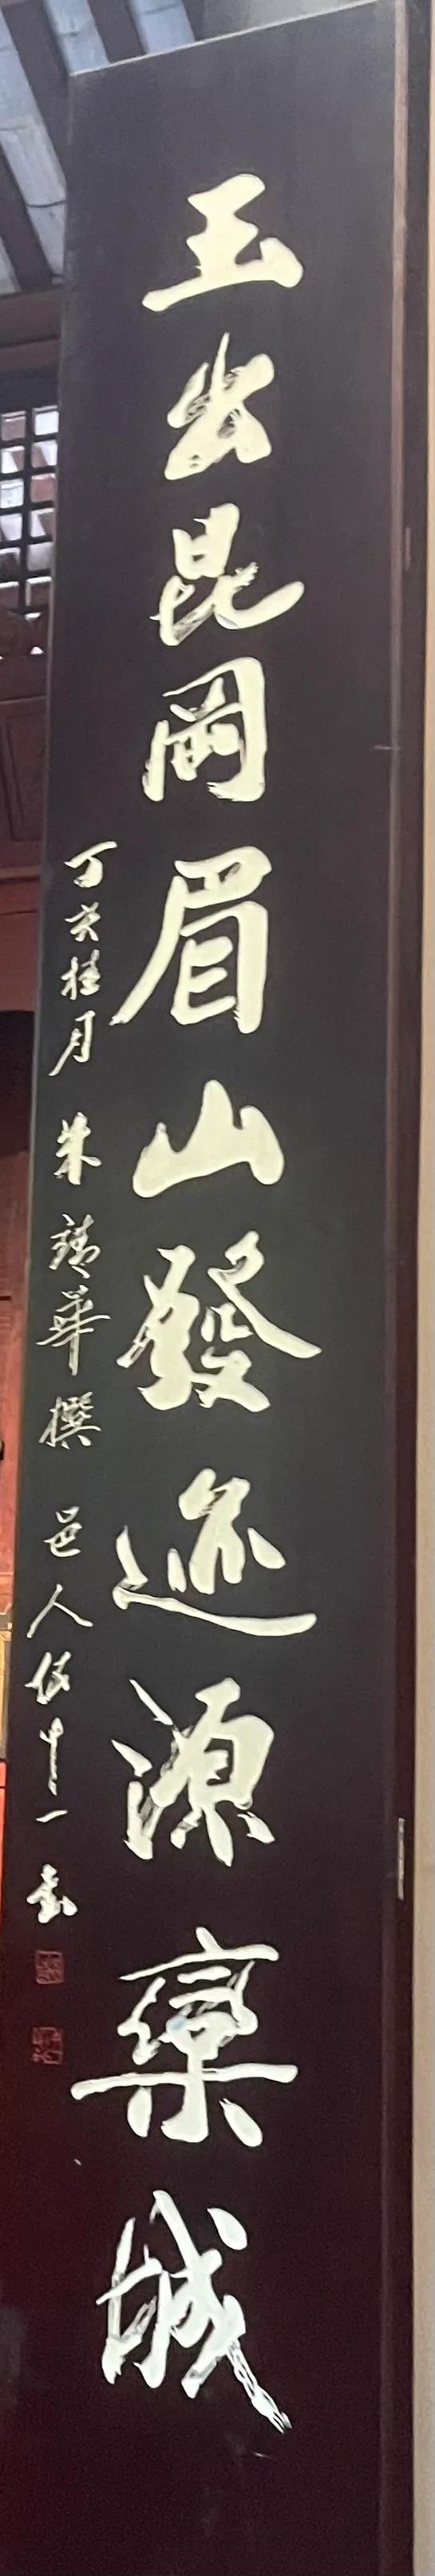 玉出昆岡眉山發迹源欒城
丁亥桂月 朱靖華撰 邑人 一書